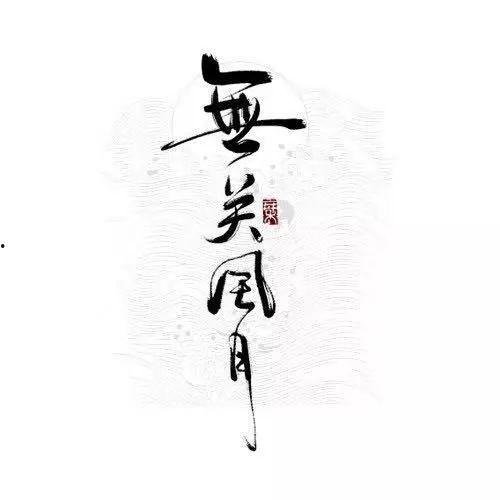 無关風月